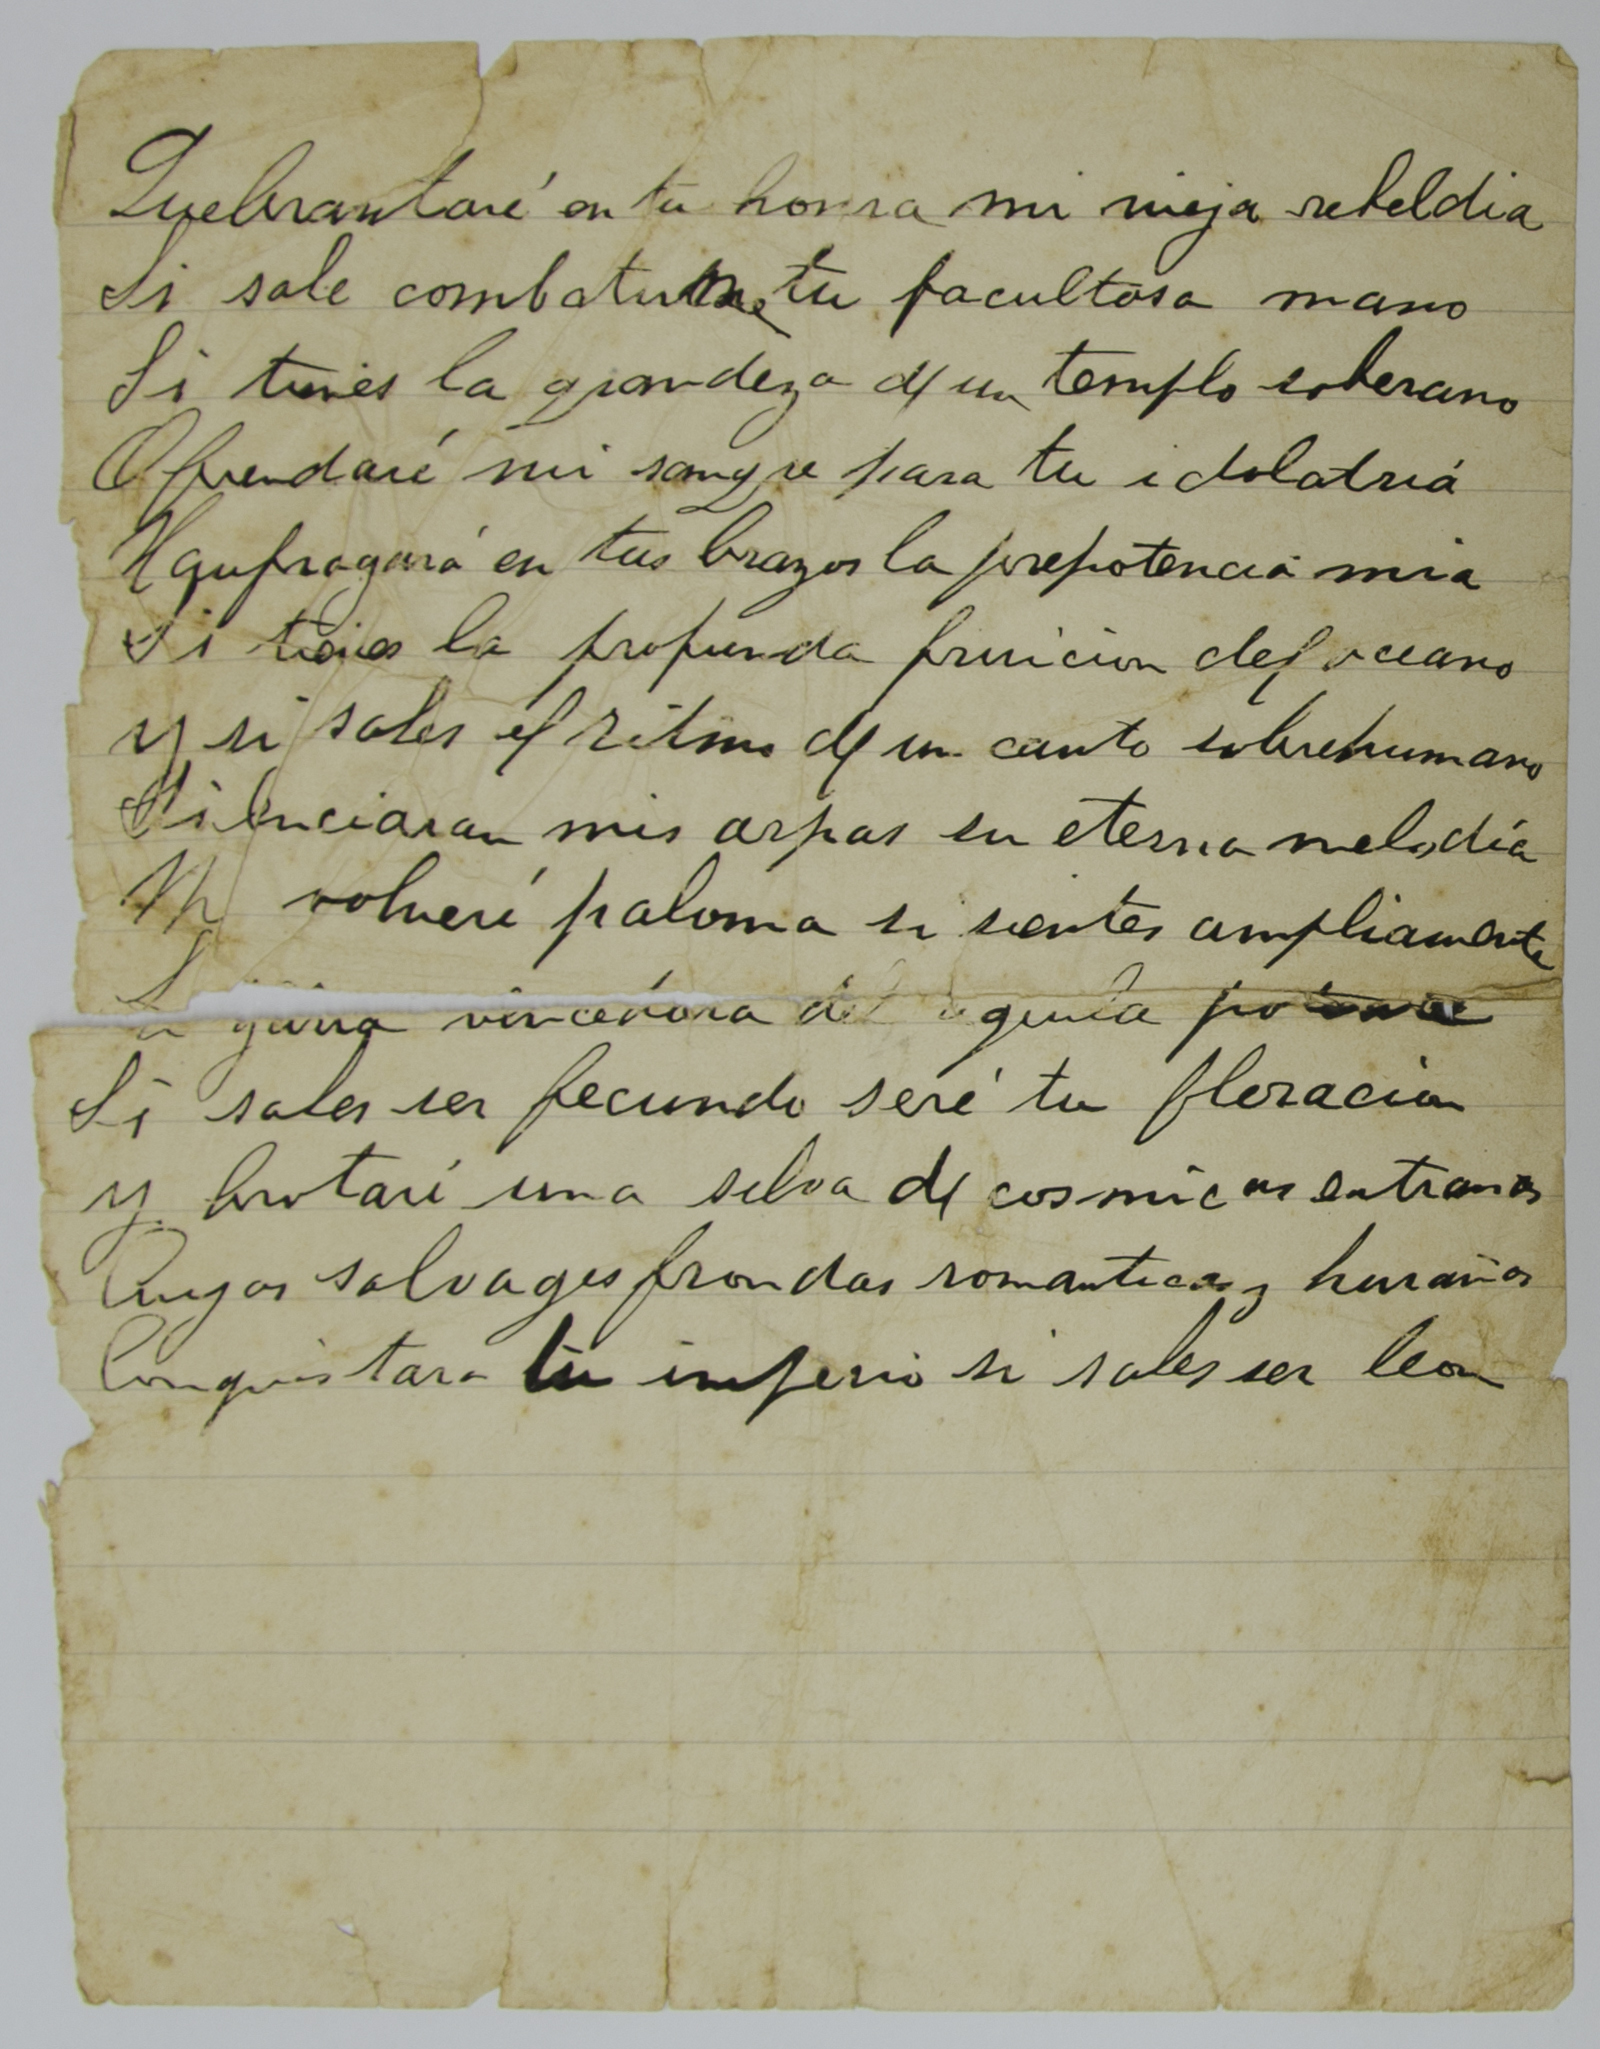 Quebrantaré en tu honra mi vieja rebeldia
Si sale combatirme tu facultosa mano
Si tienes la grandeza de un templo soberano
Ofrendaré mi sangre para tu idolatriá
Naufragará en tus brazos la prepotencia mia
Si tienes la profunda fruicion del oceano
y si sales el ritmo de un canto sobrehumano
Silenciaran mis arpas su eterna melodía
volveré paloma si sientes ampliamente
La garra vencedora del aguila
Si sales ser fecundo seré tu floracion
y brotaré una selva de cosmicas entranas
Cuyas salvages frondas romanticas y hurañas
Conquistara tu imperio si sales ser leon